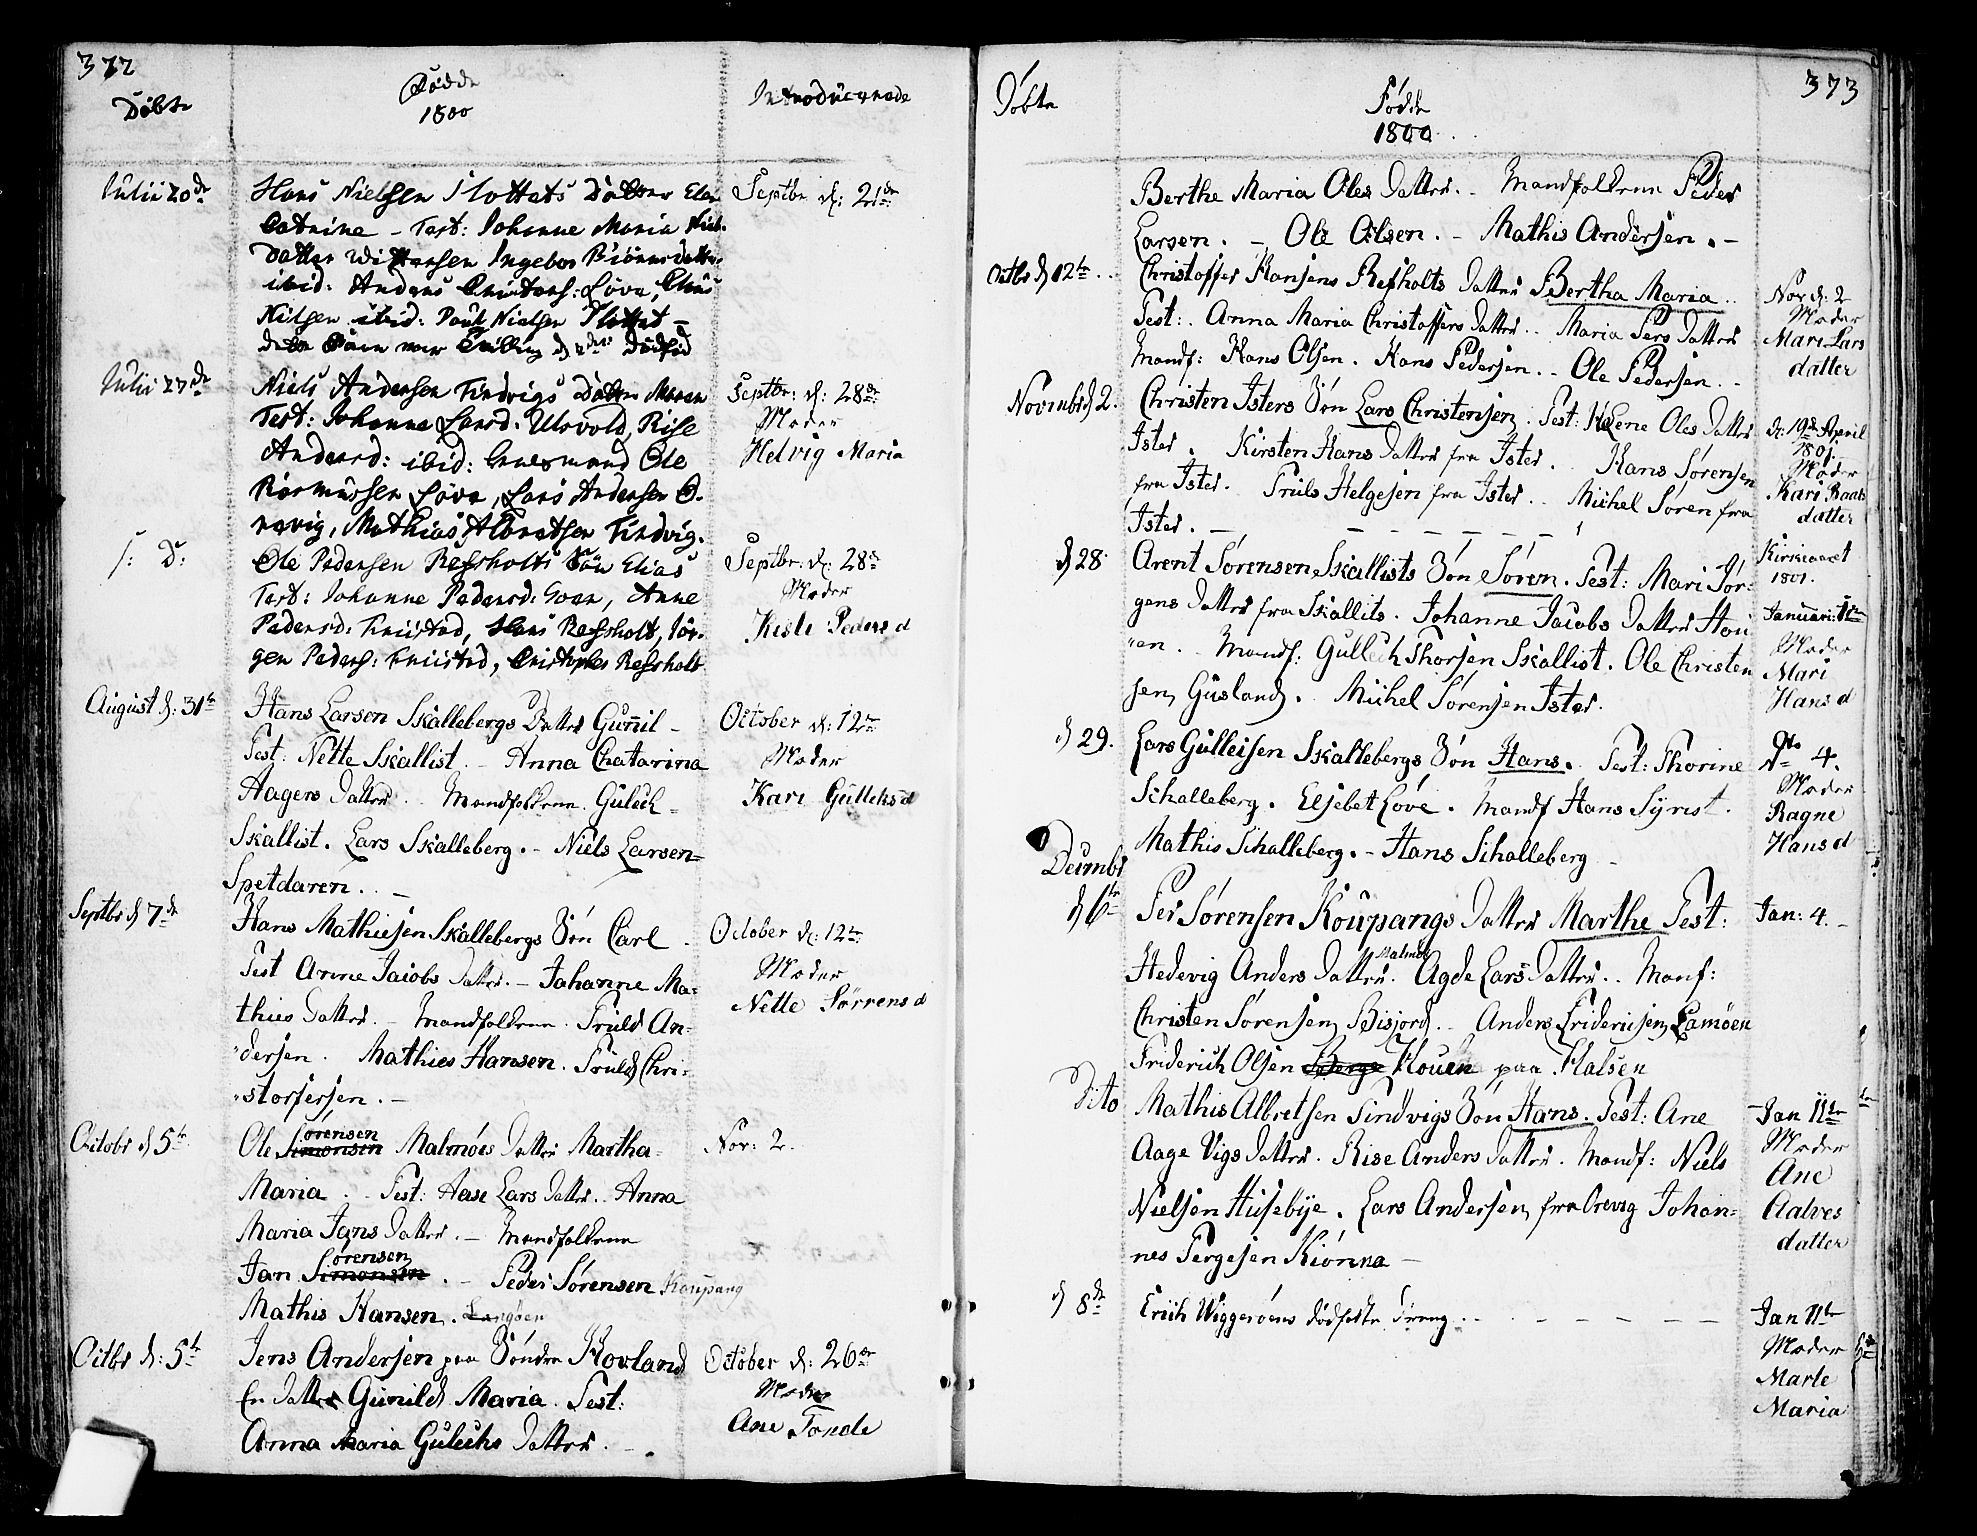 372
Døbte
Fødde
1800
Introducerede
Julii 20de
Hans Nielsen Slottets Datter Elen
Catrine - Test: Johanne Maria Niels
datter Wittersen Ingebor Biörnsdatter
ibid: Anders Christens: Löve, Elias
Nilsen ibid: Poul Nielsen Slottet -
dette Barn war Tvilling d 2det dødfød
Septbr d: 21de
Julii 27de
Niels Andersen Tindvigs Datter Maren
Test: Johanne Larsd: Ulevold, Rise
Andersd: ibid: Ole
Rasmussen Löve, Lars Andersen O-
revig, Mathias Albretsen Tindvig.
Septbr: d: 28de
Moder
Helvig Maria
s: D:
Ole Pedersen Refsholts Sön Elias
Test: Johanne Pedersd: Goen, Anne
Pedersd: Friistad, Hans Refsholt, Jör-
gen Peders: Friistad, Christopher Refsholt
Septbr: d: 28de
Moder
Kiste Peders d
August d: 31te
Hans Larsen Skallebergs Datter Guñil -
Test: Nette Skallist. - Anna Chatarina
Aagers Datter. Mandfolkene. Gulech
Skallist. Lars Skalleberg. - Niels Larsen
Spetdaren. -
October d: 12te
Moder
Kari Gulleks d
Septbr d 7de
Hans Mathiesen Skallebergs Sön Carl -
Test Anne Jacobs Datter. - Johanne Ma-
thies Datter. - Mandfolkene. Truls An-
dersen. Mathies Hansen. Truls Chri-
storfersen. -
October d: 12te
Moder
Nette Sørrens d
Octobr d 5te
Sørensen
Ole Simonsen Malmöes Datter Martha
Maria. - Test: Aase Lars Datter. Anna
Maria Jans Datter. - Mandfolkene
Sørensen
Jan Simonsen. - Peder Sørensen Koupang
Mathis Hansen. Langöen
Nov: 2.
Octbr d: 5te
Jens Andersen paa Söndre Hovland
En Datter Gunild Maria. Test:
Anna Maria Gulechs Datter. -
October d: 26de
Moder
Ane Tonde
373
Døbte
Fødde
1800.
Berthe Maria Oles Datter. - Mandfolkene Peder
Larsen. - Ole Olsen. - Mathis Andersen. -
Octbr d 12te.
Christoffer Hansens Refholts Datter Bertha Maria.
Test: Anna Maria Christoffers Datter. Maria Pers Datter
Mandf: Hans Olsen. Hans Pedersen. - Ole Pedersen. -
Nov d: 2
Moder
Mari Lars
datter
Novembr d 2.
Christen Isters Sön Lars Christensen. Test: Helene Oles Datter
Ister. Kirsten Hans Datter fra Ister. Hans Sørensen
fra Ister. Truls Helgesen fra Ister. - Michel Søren fra
Ister. -
d: 19de April
1801.
Moder
Kari Roals
datter
d 28.
Arent Sørensen Skallists Sön Søren. Test: Mari Jør-
gens Datter fra Skallits. Johanne Jacobs Datter Hou
"en. Mandf: Gullech Thorsen Skallist. Ole Christen
sen Gusland. Michel Sørensen Ister.
Kirkeaaret
1801.
Januari: 1te
Moder
Mari
Hans d
d 29.
Lars Gulleisen Skallebergs Sön Hans. Test: Thorine
Schalleberg. Elsebet Löve. Mandf Hans Syrist.
Mathis Schalleberg. - Hans Schalleberg -
Dto 4.
Moder
Ragne
Hans d
Decmbr
d 6te
Per Sørensen Koupangs Datter Marthe Test:
Malmöe
Hedevig Anders Datter. Agde Lars Datter. Manf:
Christen Sørensen Bisjord. Anders Friderichsen Lamöen
Friderich Olsen Houen paa Halsen
Jan: 4. -
Dito
Mathis Albretsen Tindvigs Sön Hans. Test: Ane
Aage Vigs Datter. Rise Anders Datter. Mandf: Niels
Nielsen Husebÿe. Lars Andersen fra Orevig Johan-
nes Tergesen Kiönna -
Jan 11te
Moder
Ane
Aalves
datter
d 8de
Erich Wiggeröens dødfødte Dreng. - - - - -
Jan 11te
Moder
Marte
Maria